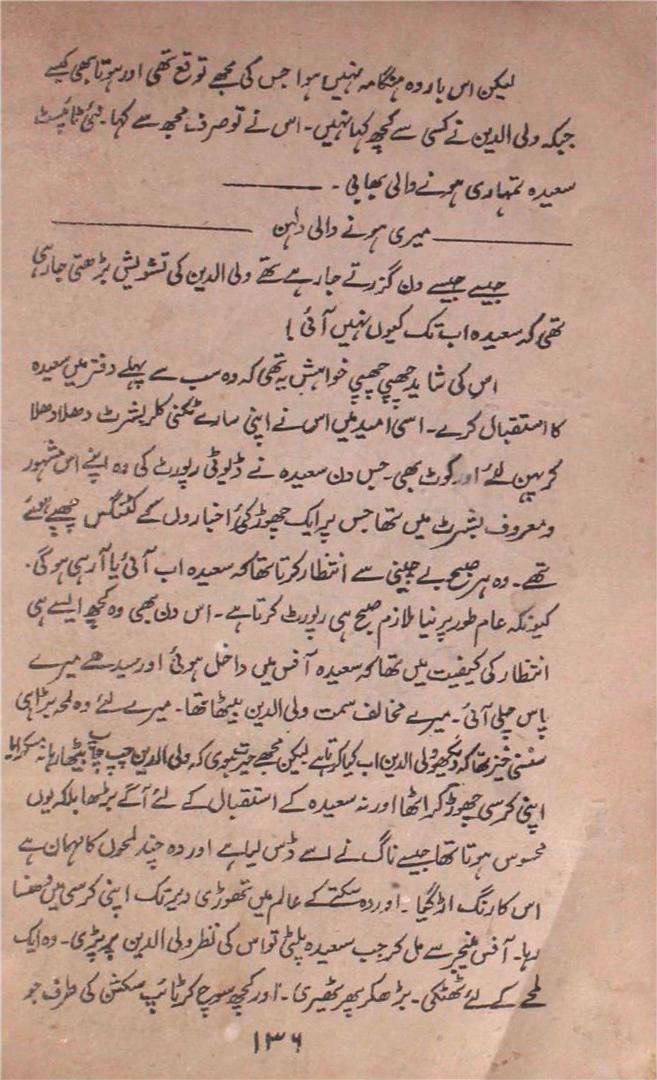 لیکن اس بار وہ ہنگامہ نہیں ہوا جس کی مجھے توقع تھی اور ہوتا بھی کیسے
جبکہ ولی الدین نے کسی سے کچھ کہا نہیں۔ اس نے تو صرف مجھ سے کہا۔ نئی ٹائپسٹ
سعیدہ تمہاری ہونے والی بھابی۔
میری ہونے والی دلہن
جیسے جیسے دن گزرتے جا رہے تھے ولی الدین کی تشویش بڑھتی جا رہی
تھی کہ سعیدہ اب تک کیوں نہیں آئی!
اس کی شاید چھپی چھپی خواہش یہ تھی کہ وہ سب سے پہلے دفتر میں سعیدہ
کا استقبال کرے۔ اسی امید میں اس نے اپنی سارے ٹکنی کلر بشرٹ دھلا دھلا
کر پہن لئے اور کوٹ بھی۔ جس دن سعیدہ نے ڈیوٹی رپورٹ کی وہ اپنے اس مشہور
و معروف بشرٹ میں تھا جس پر ایک چھوڑ کئی اخباروں کے کٹنگس چھپے ہوئے
تھے۔ وہ ہر صبح بے چینی سے انتظار کرتا تھا کہ سعیدہ اب آئی یا آ رہی ہوگی۔
کیونکہ عام طور پر نیا ملازم صبح ہی رپورٹ کرتا ہے۔ اس دن بھی وہ کچھ ایسے ہی
انتظار کی کیفیت میں تھا کہ سعیدہ آفس میں داخل ہوئی اور سیدھے میرے
پاس چلی آئی۔ میرے مخالف سمت ولی الدین بیٹھا تھا۔ میرے لئے وہ لمحہ بڑا ہی
سنسنی خیز تھا کہ دیکھو ولی الدین اب کیا کرتا ہے لیکن مجھے حیرت ہوئی کہ ولی الدین چپ چاپ بیٹھا رہا نہ مسکرایا
اپنی کرسی چھوڑ کر اٹھا اور نہ سعیدہ کے استقبال کے لئے آگے بڑھا بلکہ یوں
محسوس ہوتا تھا جیسے ناگ نے اسے ڈس لیا ہے اور وہ چند لمحوں کا مہمان ہے
اس کا رنگ اڑ گیا۔ اور وہ سکتے کے عالم میں تھوڑی دیر تک اپنی کرسی میں دھنسا
رہا۔ آفس منیجر سے مل کر جب سعیدہ پلٹی تو اس کی نظر ولی الدین پر پڑی۔ وہ ایک
لمحے کے لئے ٹھٹکی۔ بڑھ کر پھر ٹھیری۔ اور کچھ سوچ کر ٹائپ سکشن کی طرف جو
۱۳۶